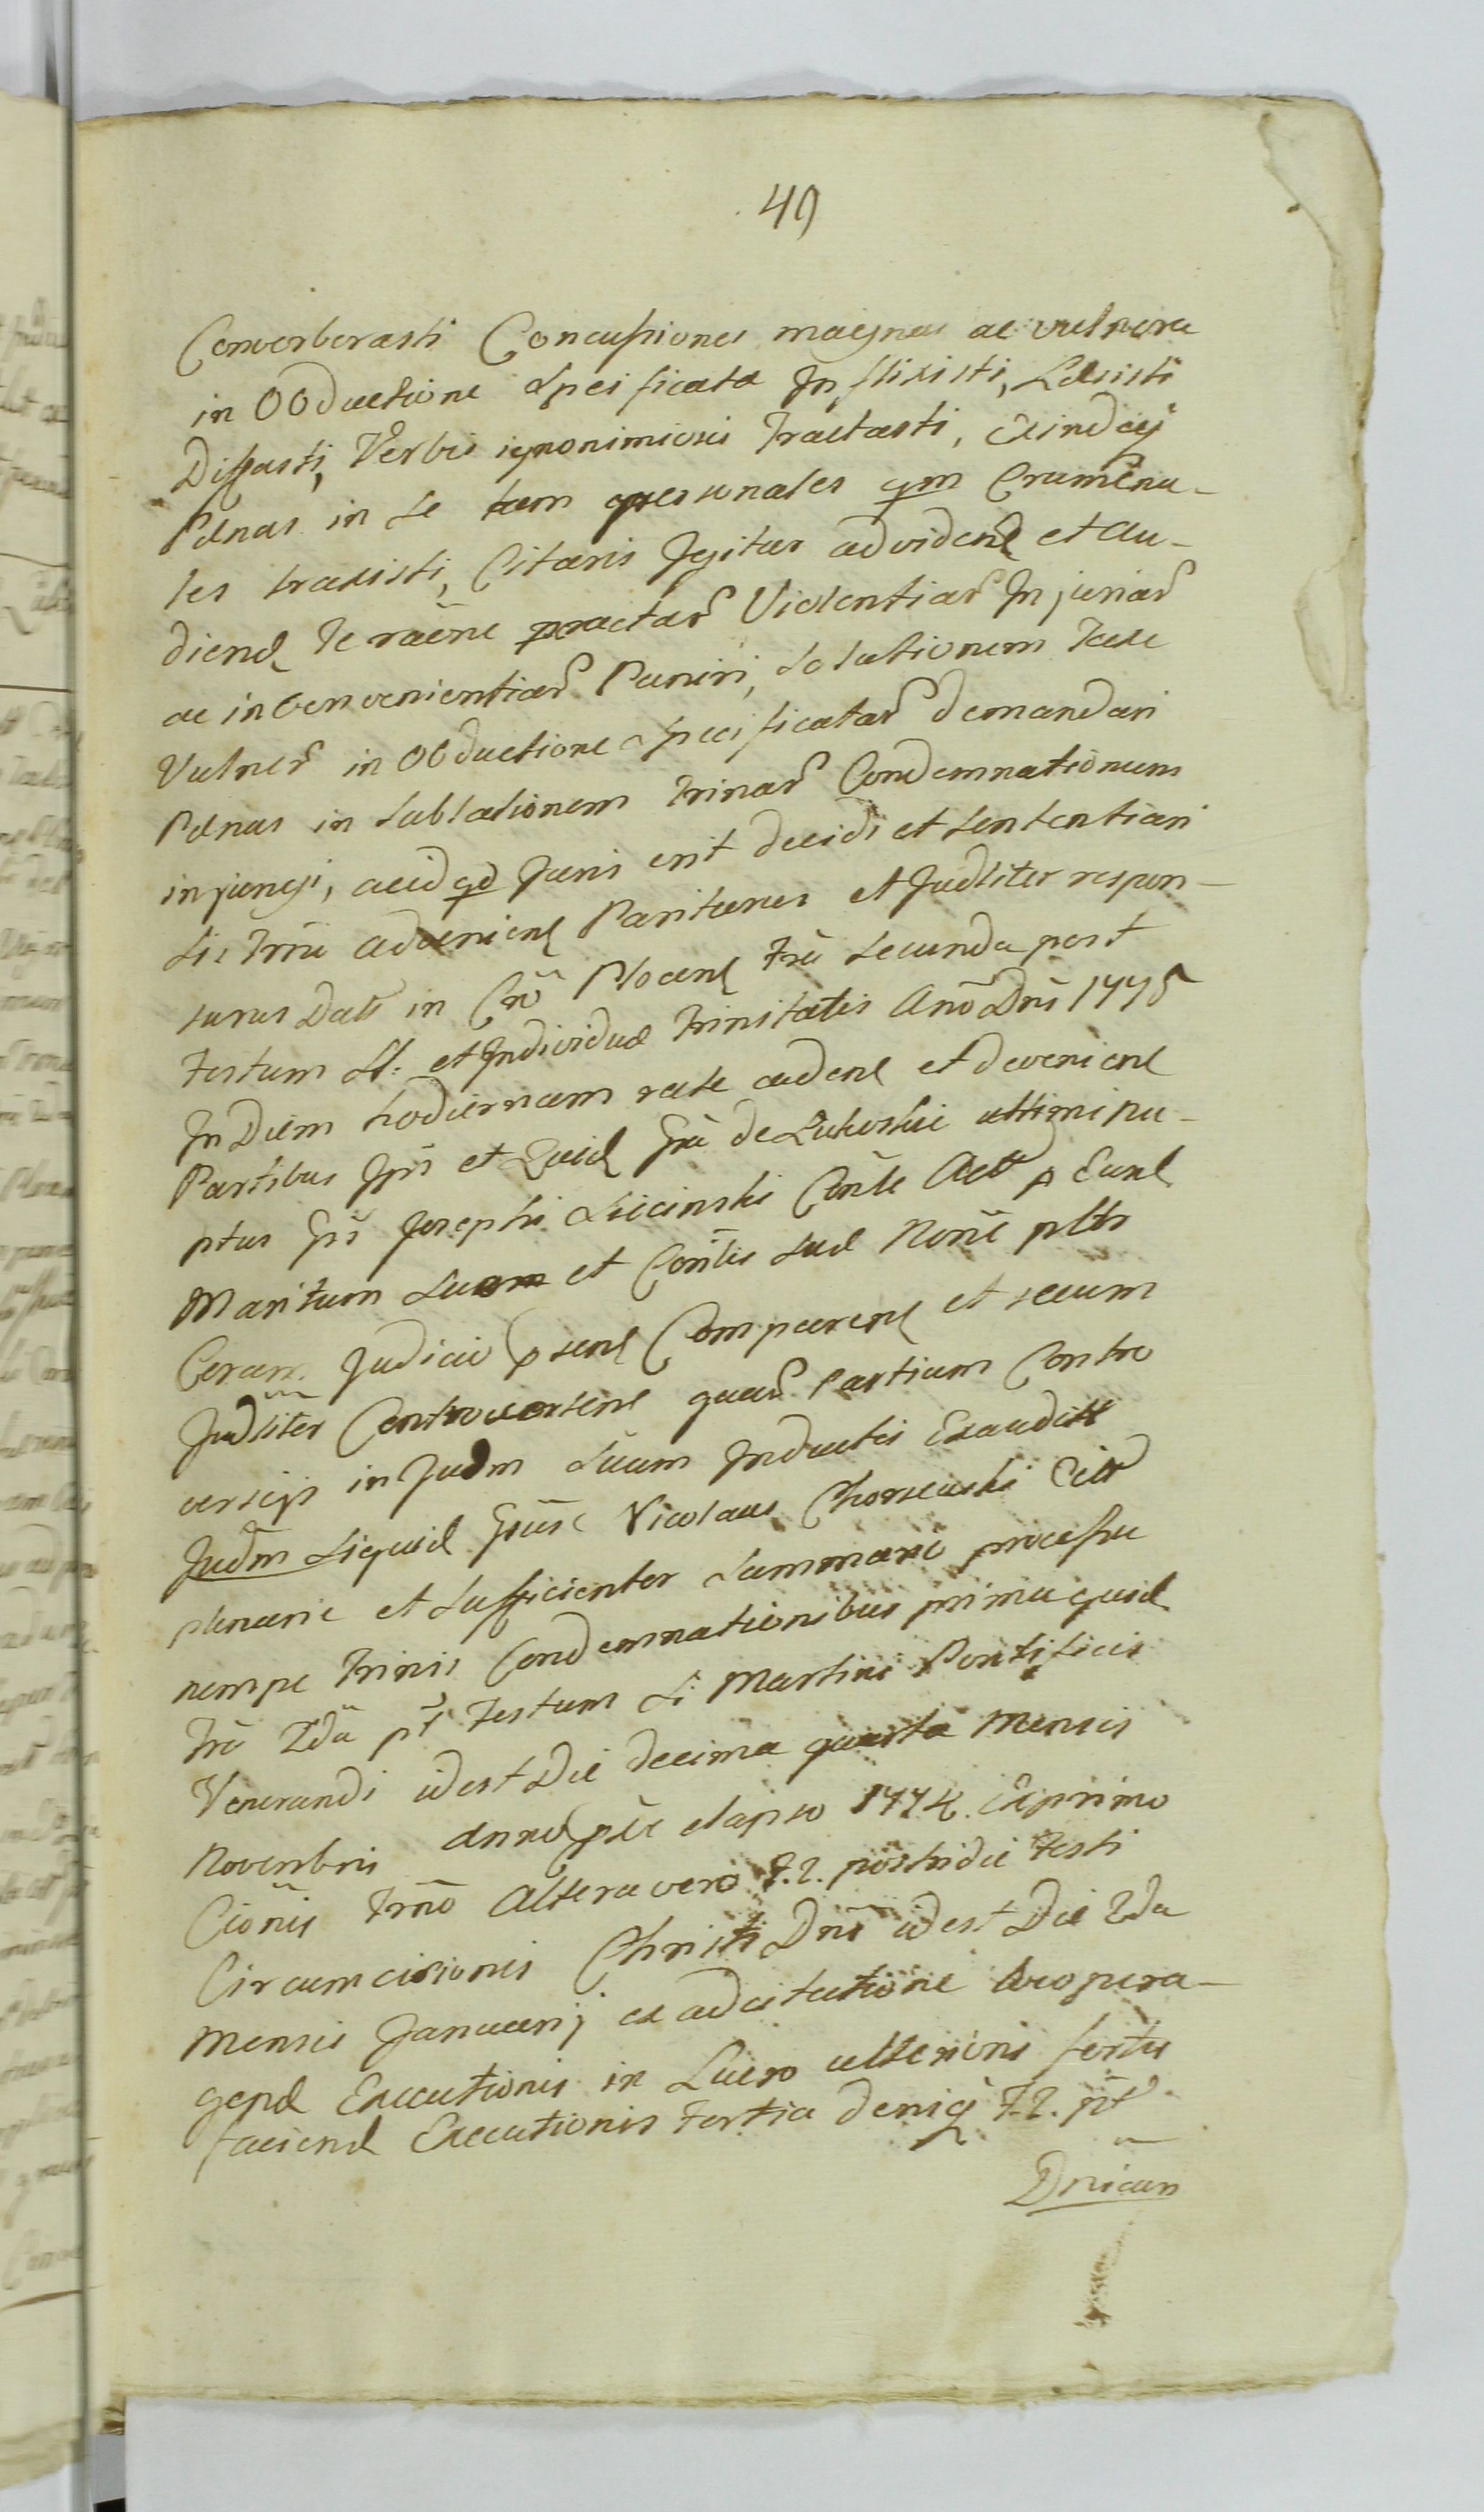 49
Converberasti Concussiones magnas ac vulnera
in Obductione specificata Inflixisti, Læsisti
Diffasti, Verbis ignonimiosis tractasti, exindeq
Pœnas in te tam personales qm Crumena-
les traxisti, Citaris Igitur advidend et au-
diend Te raone practar Violentiar Injuriar
ac inconvenientiar Puniri, solutionem taxe
Vulner in Obductione specificatar demandari
Pœnas in sublationem trinar Condemnationum
injungi, acid qd Juris erit decidi et sententiari
sis Trm advenien Pariturus et Judliter respon-
surus Dat in Cro Plocen fra secunda post
Festum SS: et Individuæ Trinitatis Ano Dni 1775
In Diem hodiernam rate caden et devenien
Partibus Ipsis et Quid Gra de Zukoskie ultimi nu-
ptus Gsi Josephi Siecinski Conte Act p Eund
Maritum Suum et Contis suæ Noie plr
Coram Judicio psen Comparen et secum
Judliter Controverten quar Partium Contro
versijs in Judm Suum Inductis Exauditis
Judm Siquid Gsus Nicolaus Chorzewski Citt
plenarie et sufficienter summario processu
nempe trinis Condemnationibus prima quid
fra 2da pt Festum S Martini Pontificis
Venerandi idest Die decima quarta Mensis
Novembris Anno pte elapso 1774 Ex primo
Cionis Trno Altera vero F.2. postridie Festi
Circumcisionis Christi Dni idest Die 2da
Mensis Januarij ex adcitatione pro pera-
gend Executionis in Lucro ulterioris fortis
faciend Executionis tertia deniq F.2. pt
Dnicam